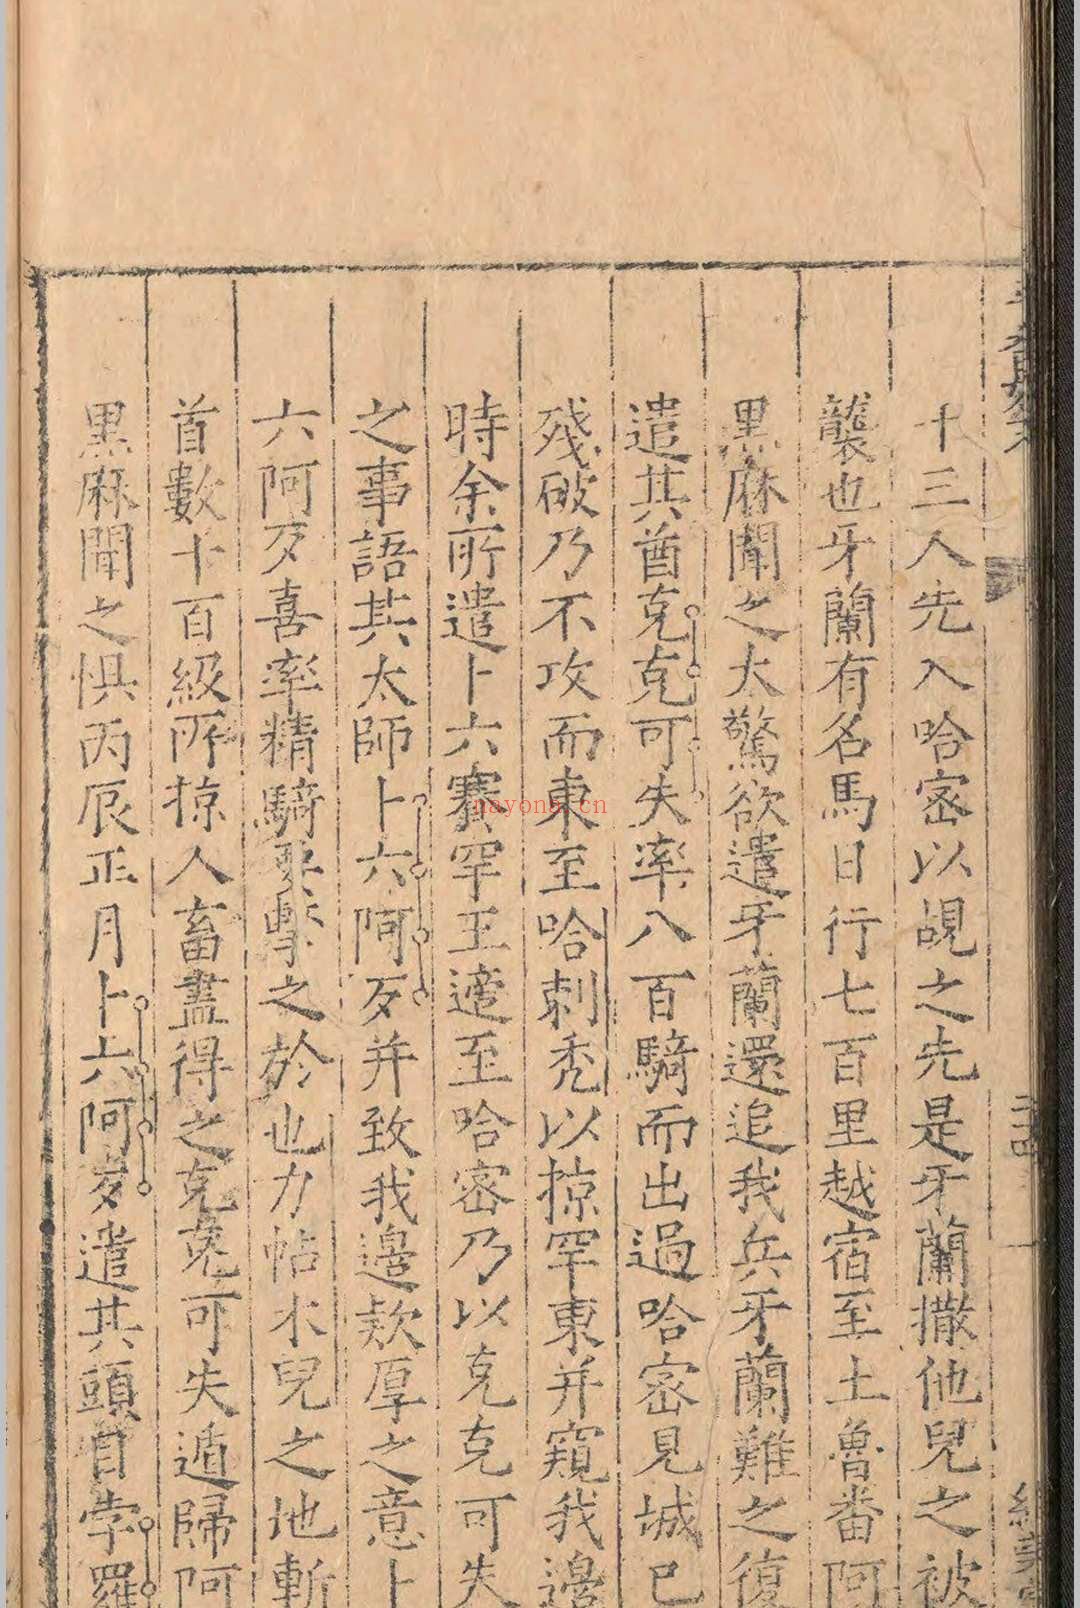 十三人先入哈密以覘之先是牙蘭撒他兒之被
襲也牙蘭有名馬日行七百里越宿至土魯番阿
黑麻聞之大驚欲遣牙蘭還追我兵牙蘭難之復
遣其酋克克可失率八百騎而出過哈密見城已
殘破乃不攻而東至哈剌禿以掠罕東并窺我邊
時余所遣卜六賽罕王適至哈密乃以克克可失
之事語其太師卜六阿歹并致我邊欵厚之意卜
六阿歹喜率精騎要擊之於也力帖木兒之地斬
首數十百級所掠人畜盡得之克克可失遁歸阿
黑麻聞之惧丙辰正月卜六阿歹遣其頭目孛羅
nayona.cn